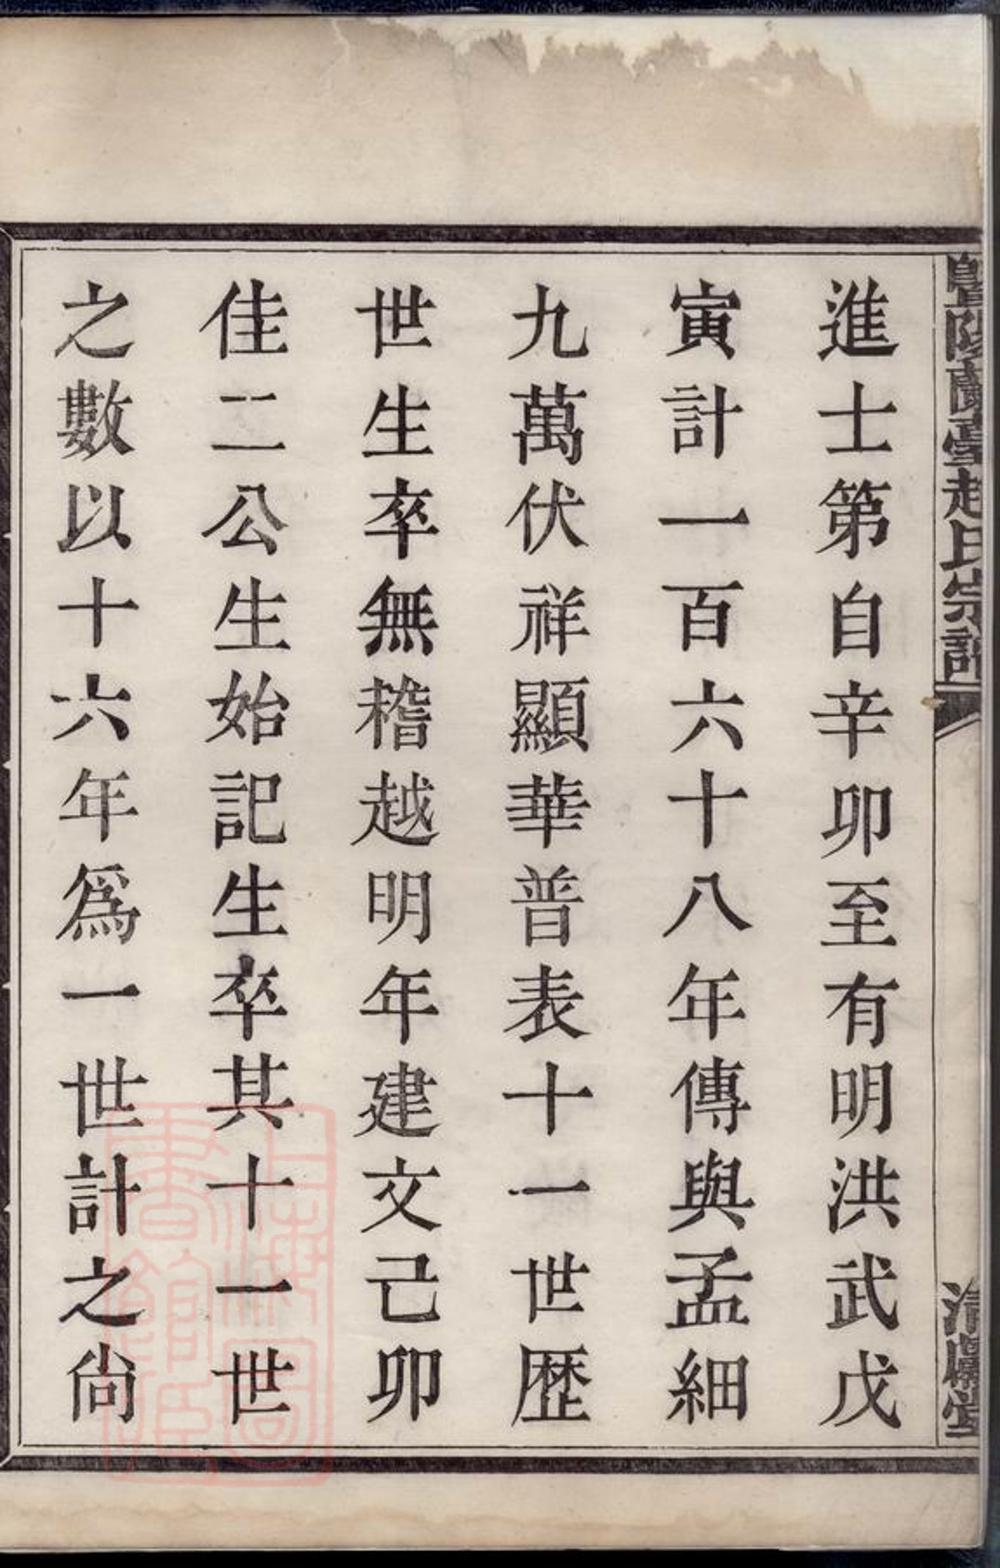 進士第自辛卯至有明洪武戊
寅計一百六十八年傳與孟細
九萬伏祥顯華普表十一世歴
世生卒無稽越明年建文己卯
佳二公生始記生卒其十一世
之數以十六年為一世計之尙
趙氏宗譜